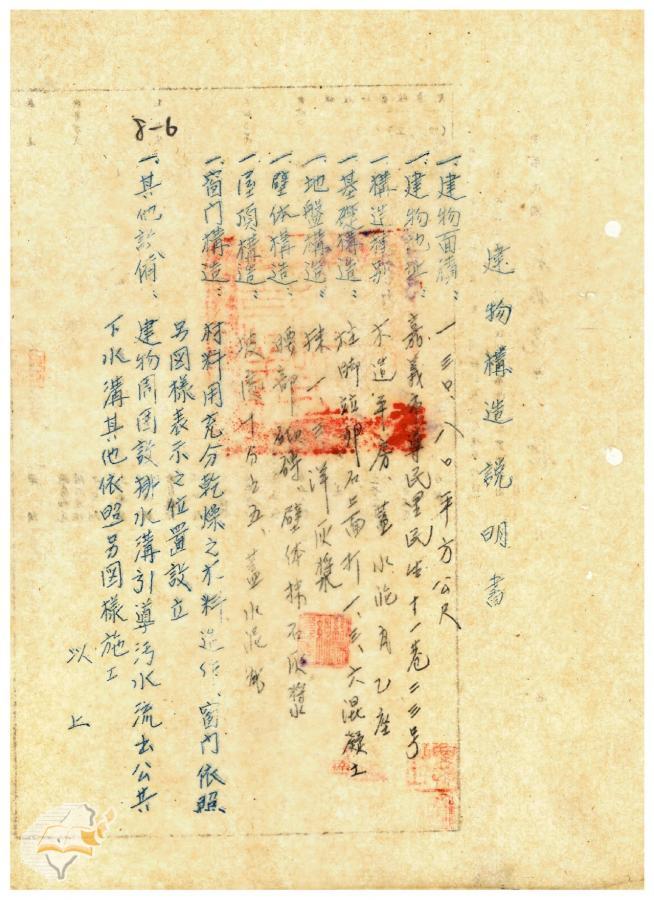 建物構造說明書
一、建物面積：一三〇.八〇平方公尺
一、建物地址：嘉義市導民里民生十一巷二三号
一、構造種別：木造平房、蓋水泥瓦乙座
一、基礎構造：柱脚莊卵石上面打一、三、六混凝土
一、地盤構造：抹一、三洋灰漿
一、壁体構造：腰部砌磚、壁体抹石灰漿
一、屋頂構造：坡度十分之五、蓋水泥瓦
一、窗门構造：材料用充分乾燥之木料造作、窗门依照
另図樣表示之位置設立
一、其他設備：建物周囲設排水溝引導污水流出公共
下水溝其他依照另図樣施工
以上
8-6